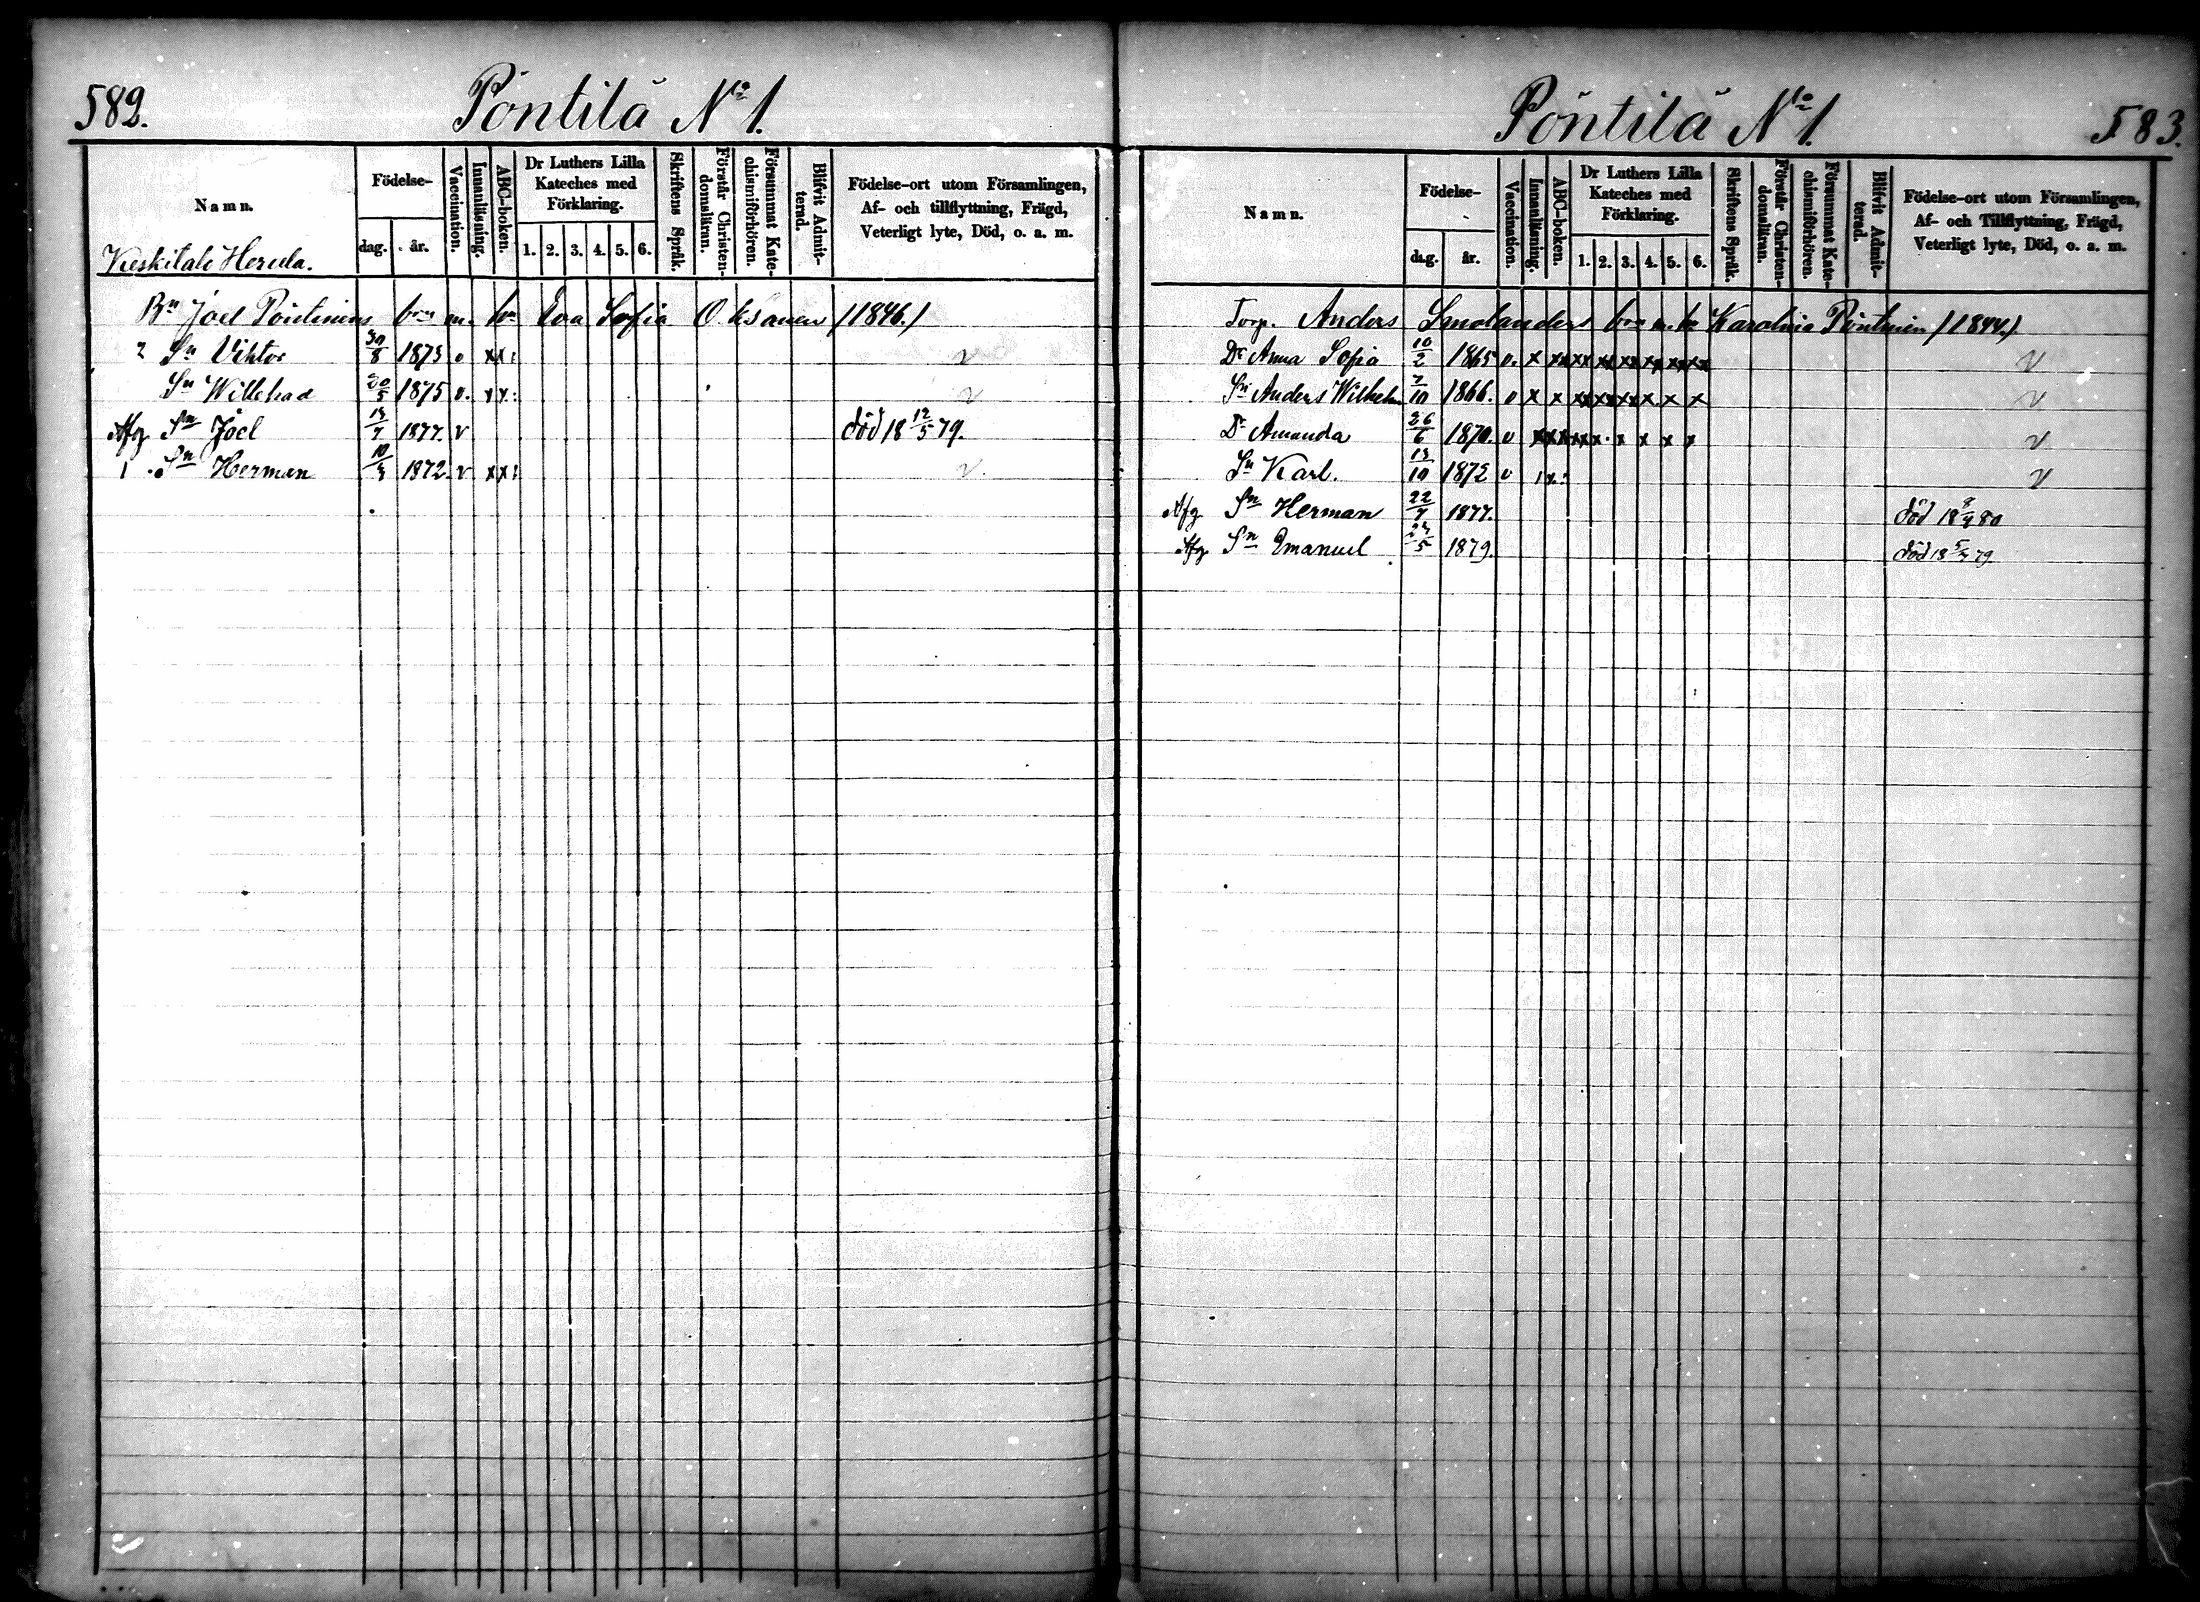 582.
Pöntilä No 1.
Namn.
Födelse-
dag. år.
Vaccination.
Innanläsning.
ABC-boken.
Dr Luthers Lilla
Kateches med
Förklaring.
1. 2. 3. 4. 5. 6.
Skriftens Språk.
Förstår Christen-
domsläran.
Försummat Kate-
chismiförhören.
Blifvit Admit-
terad.
Födelse-ort utom Församlingen,
Af- och tillflyttning, Frägd,
Veterligt lyte, Död, o. a. m.
Keskitalo Herula.
Bn Joel Pöntinens brn m. hu Eva Sofia Oksanen (1846.)
2 Sn Viktor 30/8 1873 v x x: v
Sn Willehad 20/5 1875 v. x x: v
Afg Sn Joel 13/7 1877. v död 18 12/5 79.
1 Sn Herman 10/3 1872. v x x: v.
Pöntilä No 1.
583.
Namn.
Födelse-
dag. år.
Vaccination.
Innanläsning.
ABC-boken.
Dr Luthers Lilla
Kateches med
Förklaring.
1. 2. 3. 4. 5. 6.
Skriftens Språk.
Förstår Christen-
domsläran.
Försummat Kate-
chismiförhören.
Blifvit Admit-
terad.
Födelse-ort utom Församlingen,
Af- och Tillflyttning, Frägd,
Veterligt lyte, Död, o. a. m.
Torp. Anders Smolanders brn m. hu Karolina Pöntinen (1844.)
Dr Anna Sofia 10/2 1865 v. x x xx xx xx xx xx xx v
Sn Anders Wilhelm 7/10 1866. v x x xx xx xx x x x v
Dr Amanda 26/6 1870. v xx x xx x. x x x x v
Sn Karl. 13/10 1872 v v
Afg Sn Herman 22/7 1877. död 18 9/4 80
Afg Sn Emanuel 1879. död 18 79